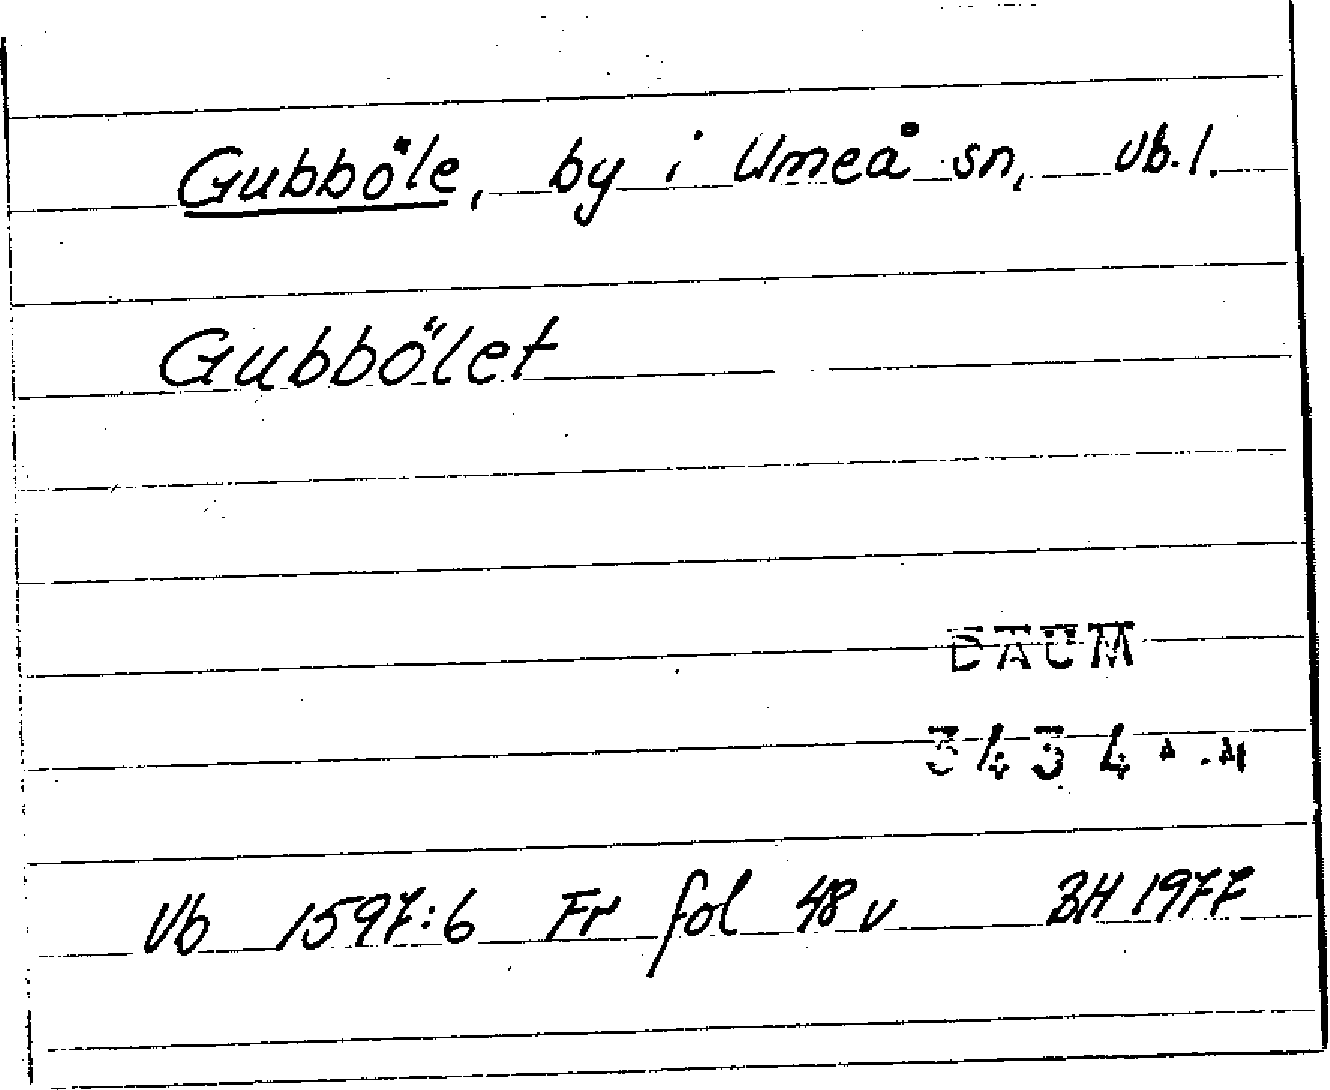 Gubböle, by i Umeå sn, Vb. l.
Gubbölet
DAUM
3434
Vb 1597:6 Fr fol 48 v BH 1977